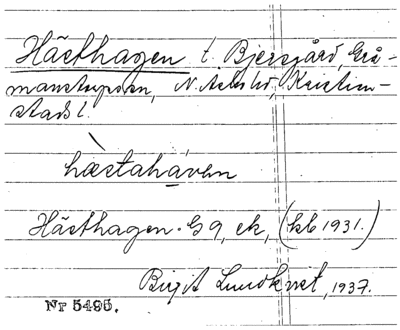 Hästhagen t. Bjersgård, Grå-
manstorpssn, N. Åsbo hd, Kristian-
stads l.
hæstahávən
Hästhagen. G 9, ek, (kb 1931.)
Birgit Lundkvist, 1937.
Nr 5495.